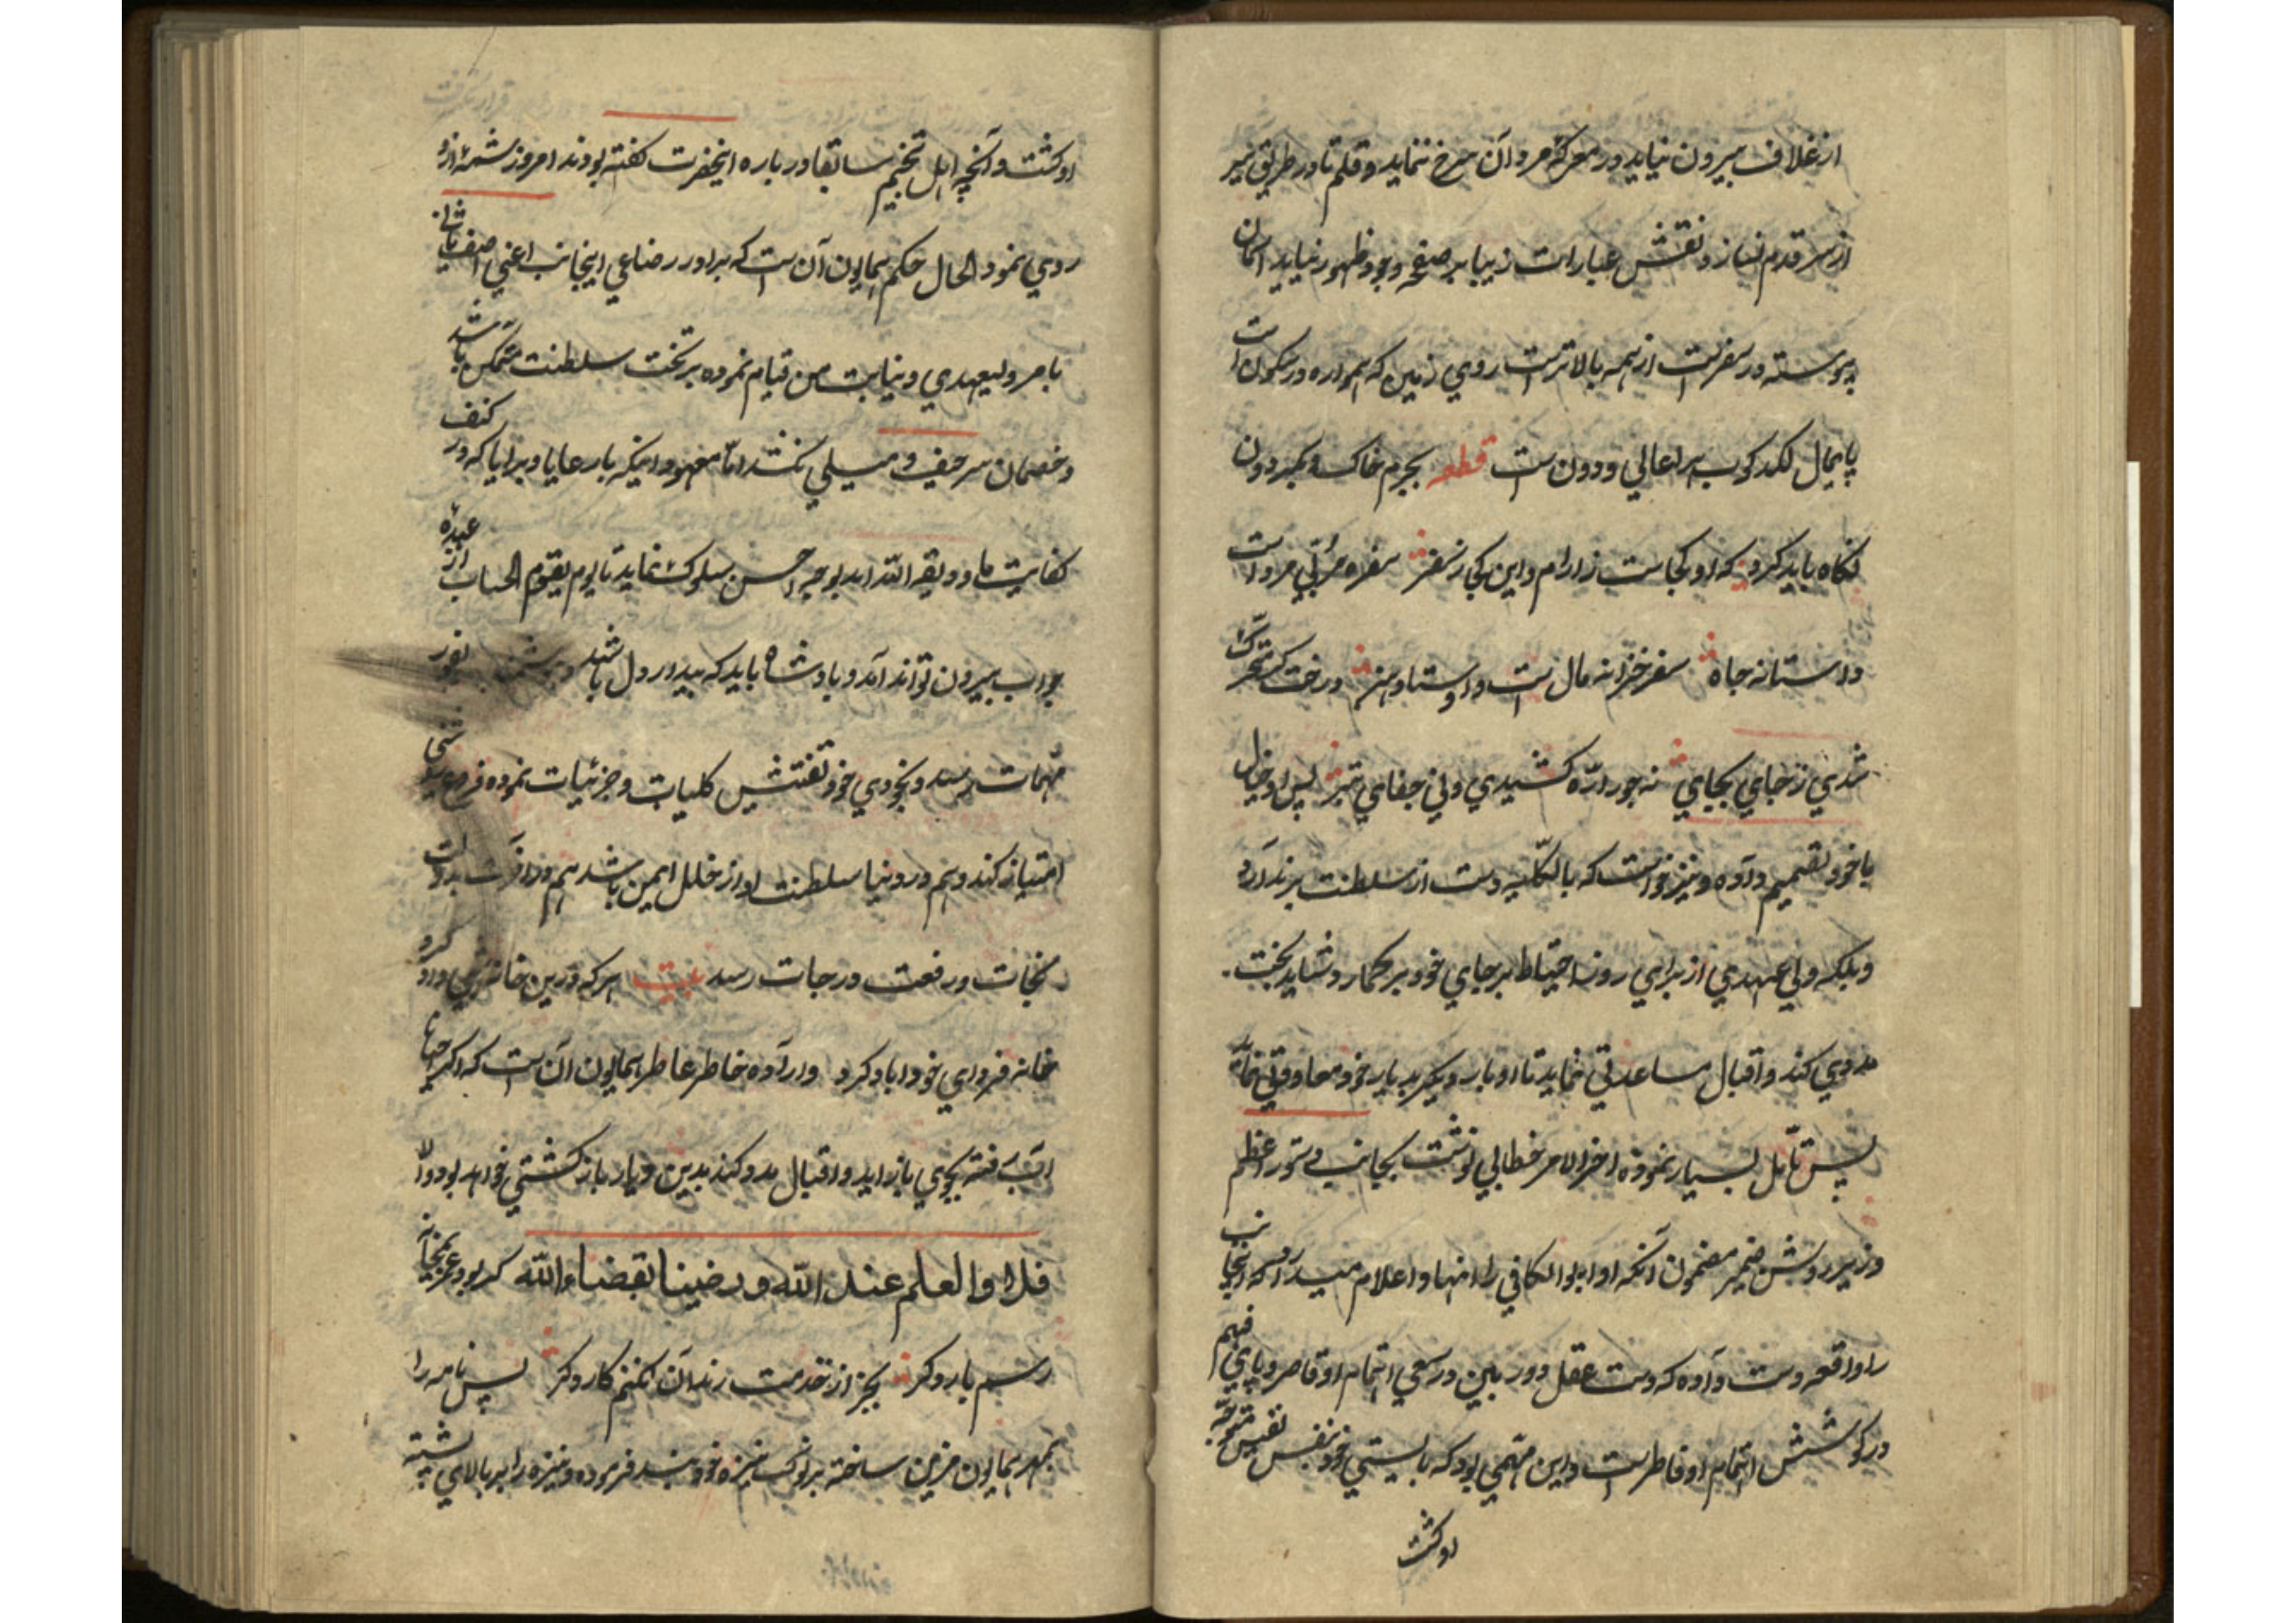 از غلاف بیرون نیاید در معرکهٔ مردان سرخ ننماید و قلم تا در طریق سیر
از سر قدم نسازد نقش عبارات زیبا بر صفحه وجود ظهور نیاید اسمان
پیوسته در سفرست از همه بالاترست روی زمین که همواره در سکون است
پایمال لکدکوب هر اعالی و دون است قطعه بجرم خاک و بگردون
نکاه باید کرد که او کجاست ز ارام و این کجا ز سفر سفر مربی مردست
و استانه جاه سفر خزانه مال است و اوستاد هنر درخت اگر متحرک
شدی ز جای بجای نه جور ارّه کشیدی و نی جفای تبر پس او خیال
با خود تصمیم داده و نیز خواست که بالکلیه دست از سلطنت برندارد
و بلکه ولی عهدی از برای روز احتیاط بر جای خود بر کمارد شاید بخت
مددی کند و اقبال مساعدتی نماید تا او بار دیکر بدیار خود معاودتی نماید
پس تأمل بسیار نموده اخر الامر خطابی نوشت بجانب دستور اعظم
وزیر روشن ضمیر مضمون آنکه او ابو الکافی را انها و اعلام میدارد که اینجانب
را واقعه دست داده که دست عقل دوربین در سعی اتمام او قاصر و پای فهم
در کوشش اتمام او فاطرست و این مهمی بود که بایستی بخود بنفس نفیس متوجه
او کشت
او کشت و آنچه اهل تنجیم سابقا در باره اینحضرت کفته بودند امروز شمهٔ ازو
روی نمود الحال حکم همایون آن است که برادر رضاعی اینجانب اعنی اصف ثانی
بامر ولیعهدی و نیابت من قیام نموده بر تخت سلطنت متمکن باشد
و خصمان سر حیف و میلی نکند اما معهود اینکه بارعایا و برایا که در کنف
کفایت ما ودیعة الله اند بوجه احسن سلوک نماید تا یوم یقوم الحساب از عهدهٔ
جواب بیرون تواند آمد و بادشاه باید که بیدار دل باشد بغور
مهمات برسد و بخودی خود تفتیش کلیات و جزئیات نموده فرع
امتیاز کند و هم در دنیا سلطنت او از خلل ایمن باشد هم در اخرت بدولت
نجات و رفعت درجات رسد بیت هر که درین خانه شبی داد کرد
خانه فردای خود اباد کرد و ارآده خاطر عاطر همایون آن است که اکر احیانا
اب رفته بجوی باز اید و اقبال مدد کند بدین دیار باز کشتی خواهد بود والا
فلا و العلم عند الله و رضینا بقضاء الله کر بود عمر بمیخانه
رسم بار دکر بجز از خدمت رندان نکنم کار دکر پس نامه را
بمهر همایون مزین ساخته بر نوک نیزه خود بند فرموده و نیزه را بر بالای پشته